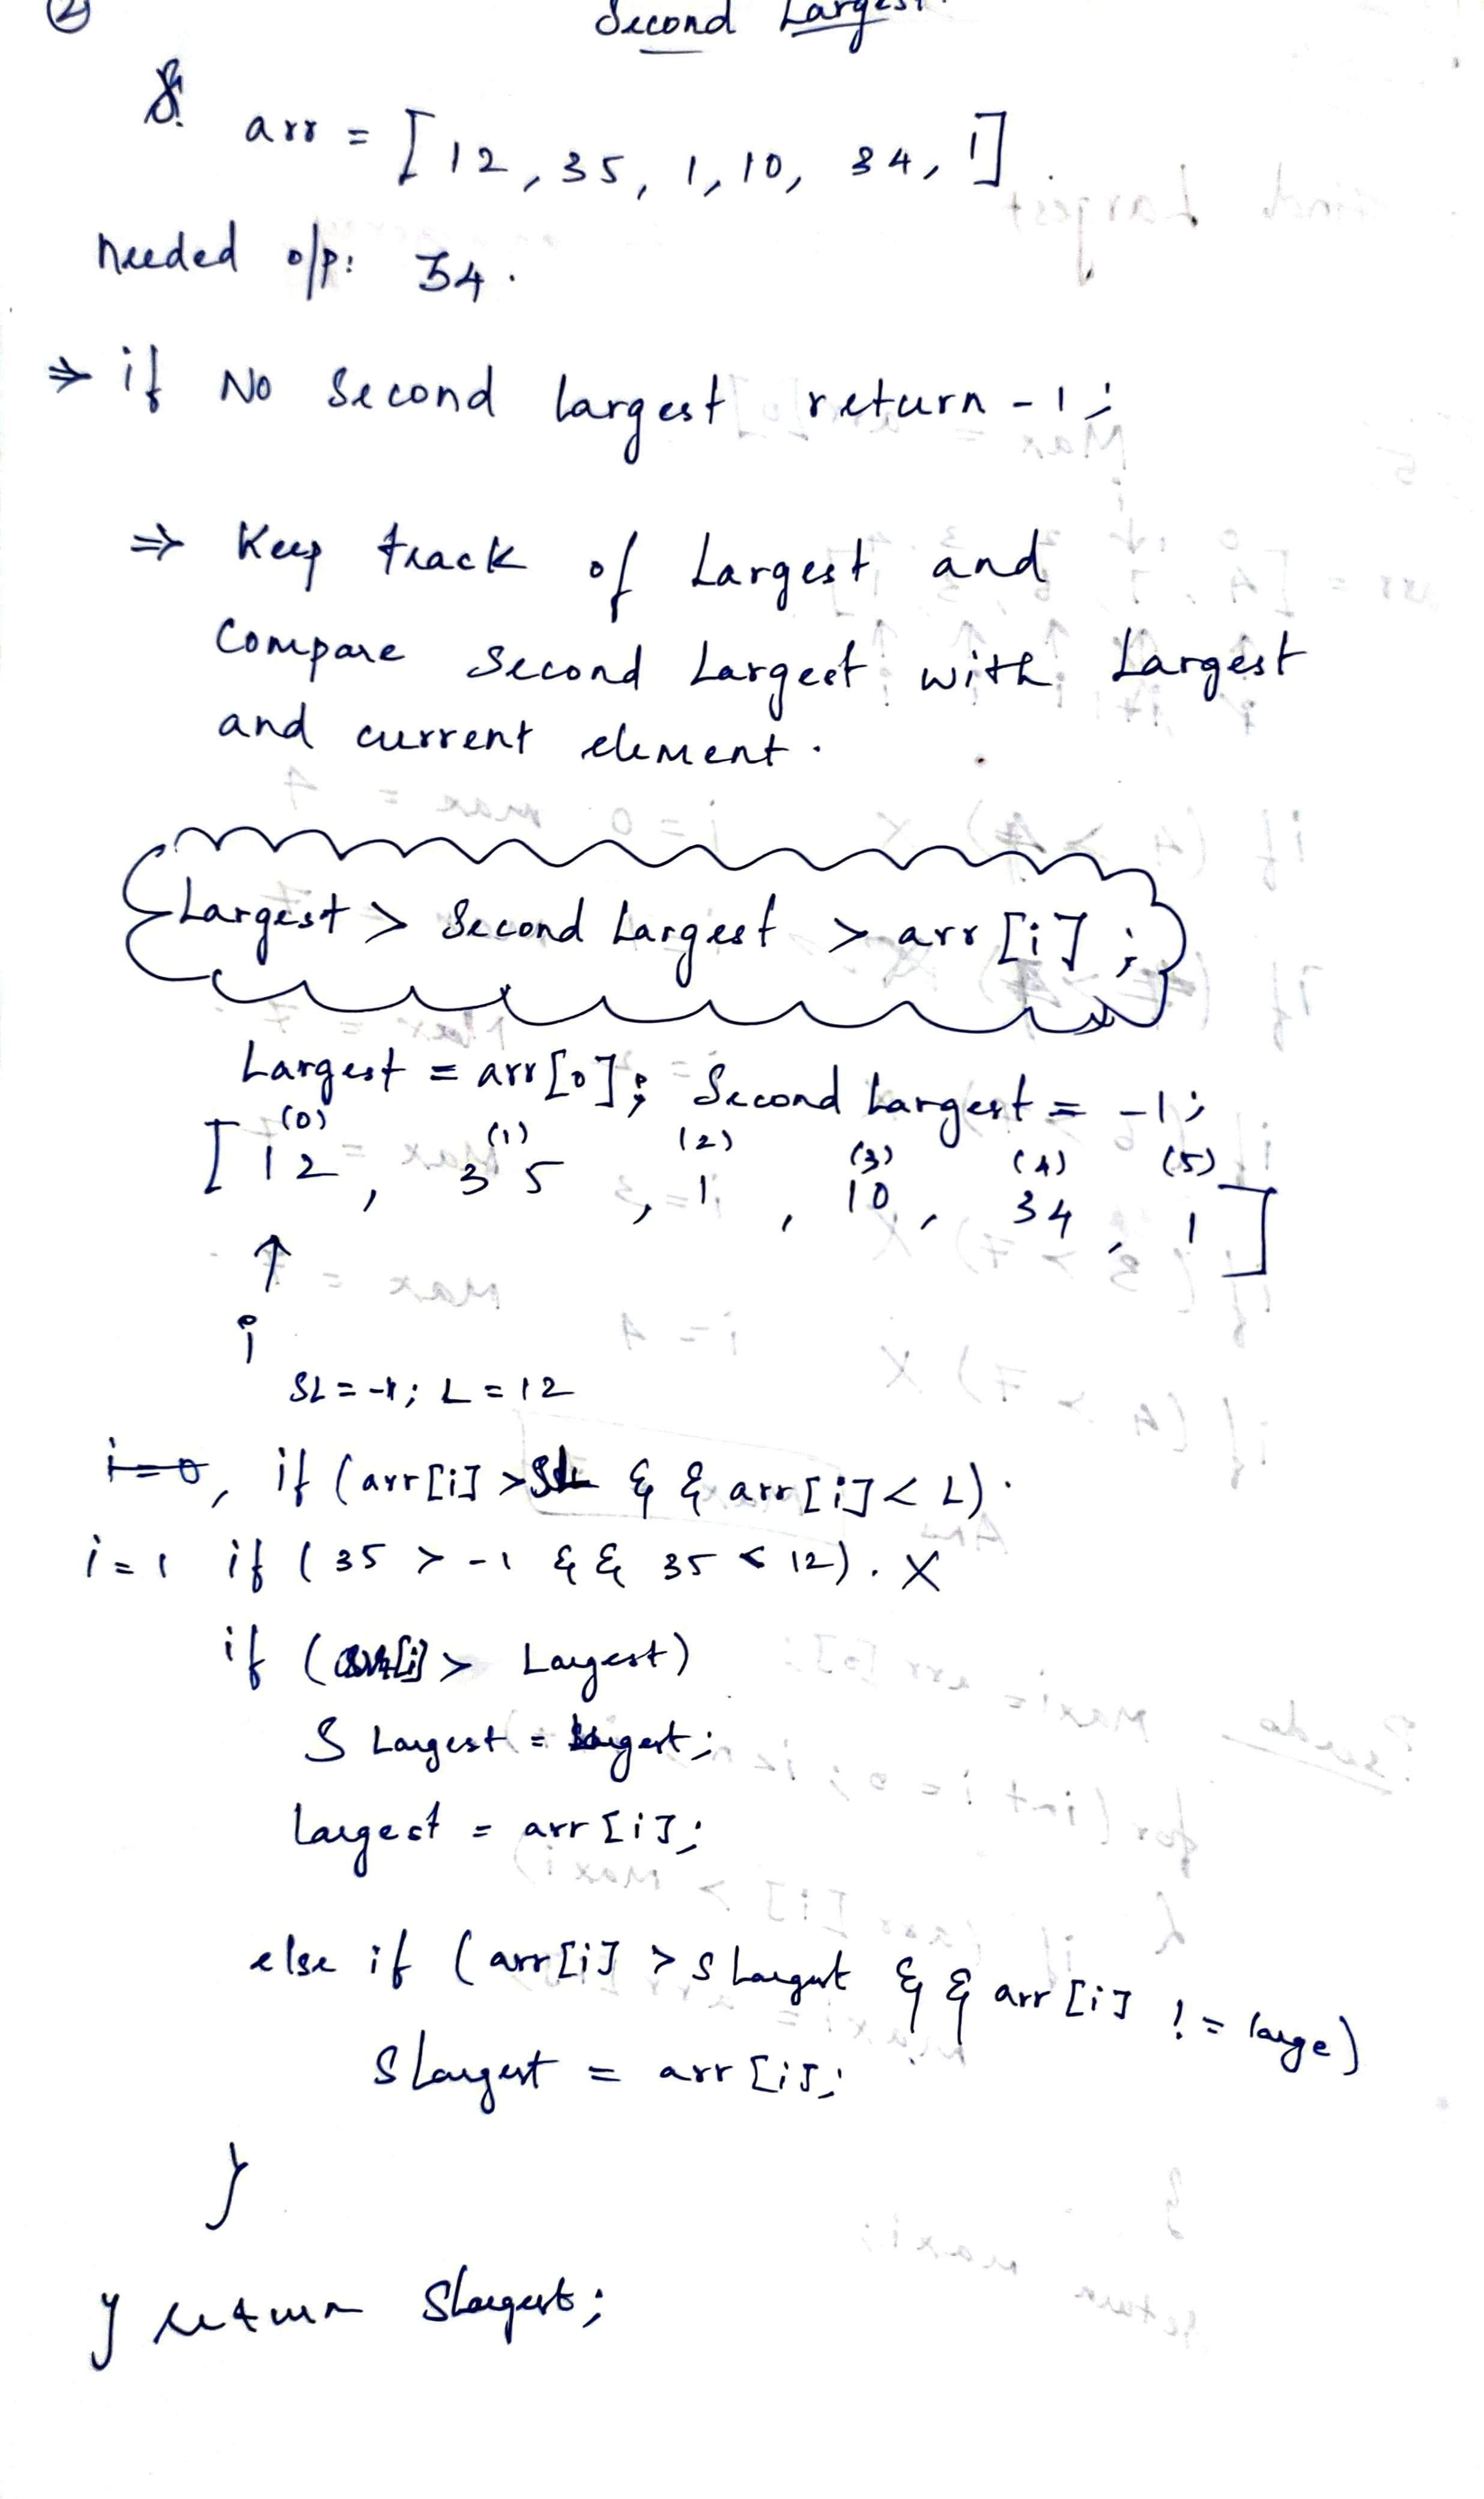 ② Second Largest
Q. arr = [12, 35, 1, 10, 34, 1]
needed o/p: 34.
⇒ if No Second Largest return -1;
⇒ Keep track of Largest and
Compare Second Largest with Largest
and current element.
Largest > Second Largest > arr[i];
Largest = arr[0]; Second Largest = -1;
(0) (1) (2) (3) (4) (5)
[12, 35, 1, 10, 34, 1]
↑
i
SL = -1; L = 12
i=0, if (arr[i] > SL && arr[i] < L).
i = 1 if (35 > -1 && 35 < 12). X
if (arr[i] > Largest)
S Largest = Largest;
Largest = arr[i];
else if (arr[i] > S Largest && arr[i] != large)
S Largest = arr[i];
}
} return SLargest;